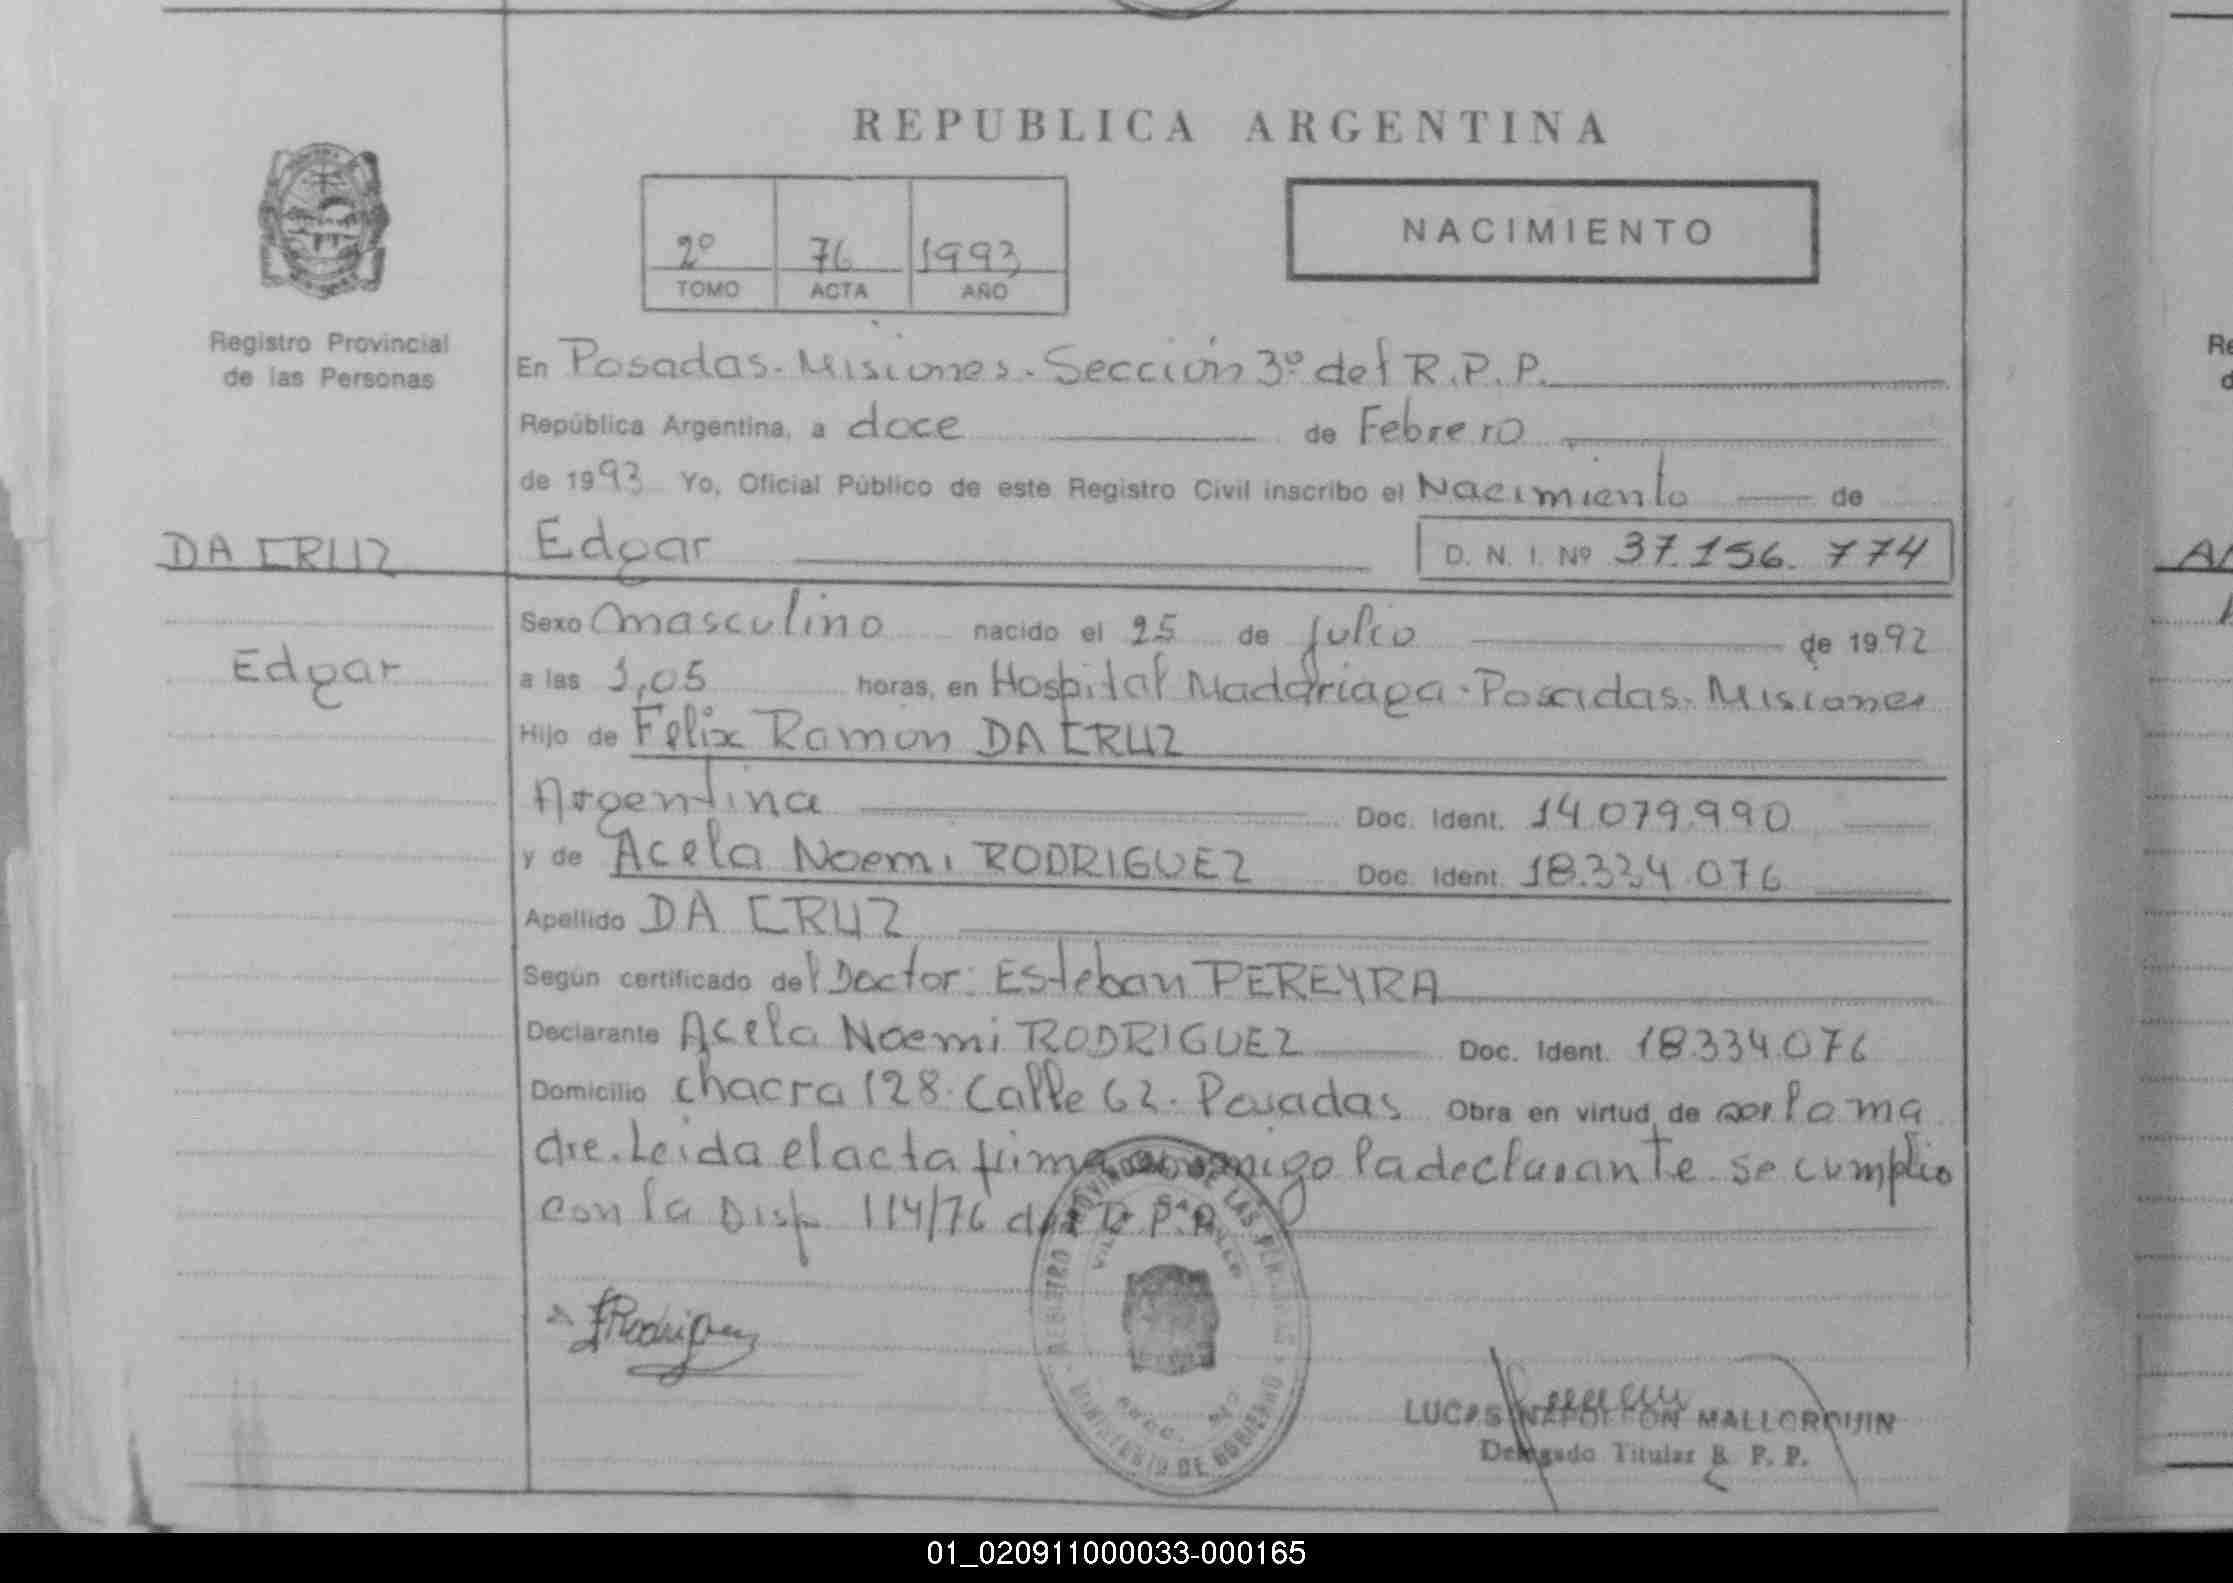 REPUBLICA ARGENTINA
NACIMIENTO
2º 76 1993
TOMO ACTA AÑO
Registro Provincial
de las Personas
En Posadas. Misiones. Sección 3º del R.P.P.
República Argentina, a doce de Febrero
de 1993 Yo, Oficial Público de este Registro Civil inscribo el Nacimiento de
DA CRUZ
Edgar
Edgar D. N. I. Nº 37.156.774
Sexo masculino nacido el 25 de Julio de 1992
a las 1,05 horas, en Hospital Madariaga. Posadas. Misiones
Hijo de Felix Ramon DA CRUZ
Argentina Doc. Ident. 14.079.990
y de Acela Noemi RODRIGUEZ Doc. Ident. 18.334.076
Apellido DA CRUZ
Según certificado del Doctor: Esteban PEREYRA
Declarante Acela Noemi RODRIGUEZ Doc. Ident. 18.334.076
Domicilio chacra 128. Calle 62. Posadas Obra en virtud de ser la ma
dre. Leida el acta firma conmigo la declarante. se cumplio
con la Disp 114/76 del R.P.P.
REGISTRO PROVINCIAL DE LAS PERSONAS
MINISTERIO DE GOBIERNO
Rodriguez
LUCAS NAPOLEON MALLORQUIN
Delegado Titular R. P. P.
Re
d
01_020911000033-000165